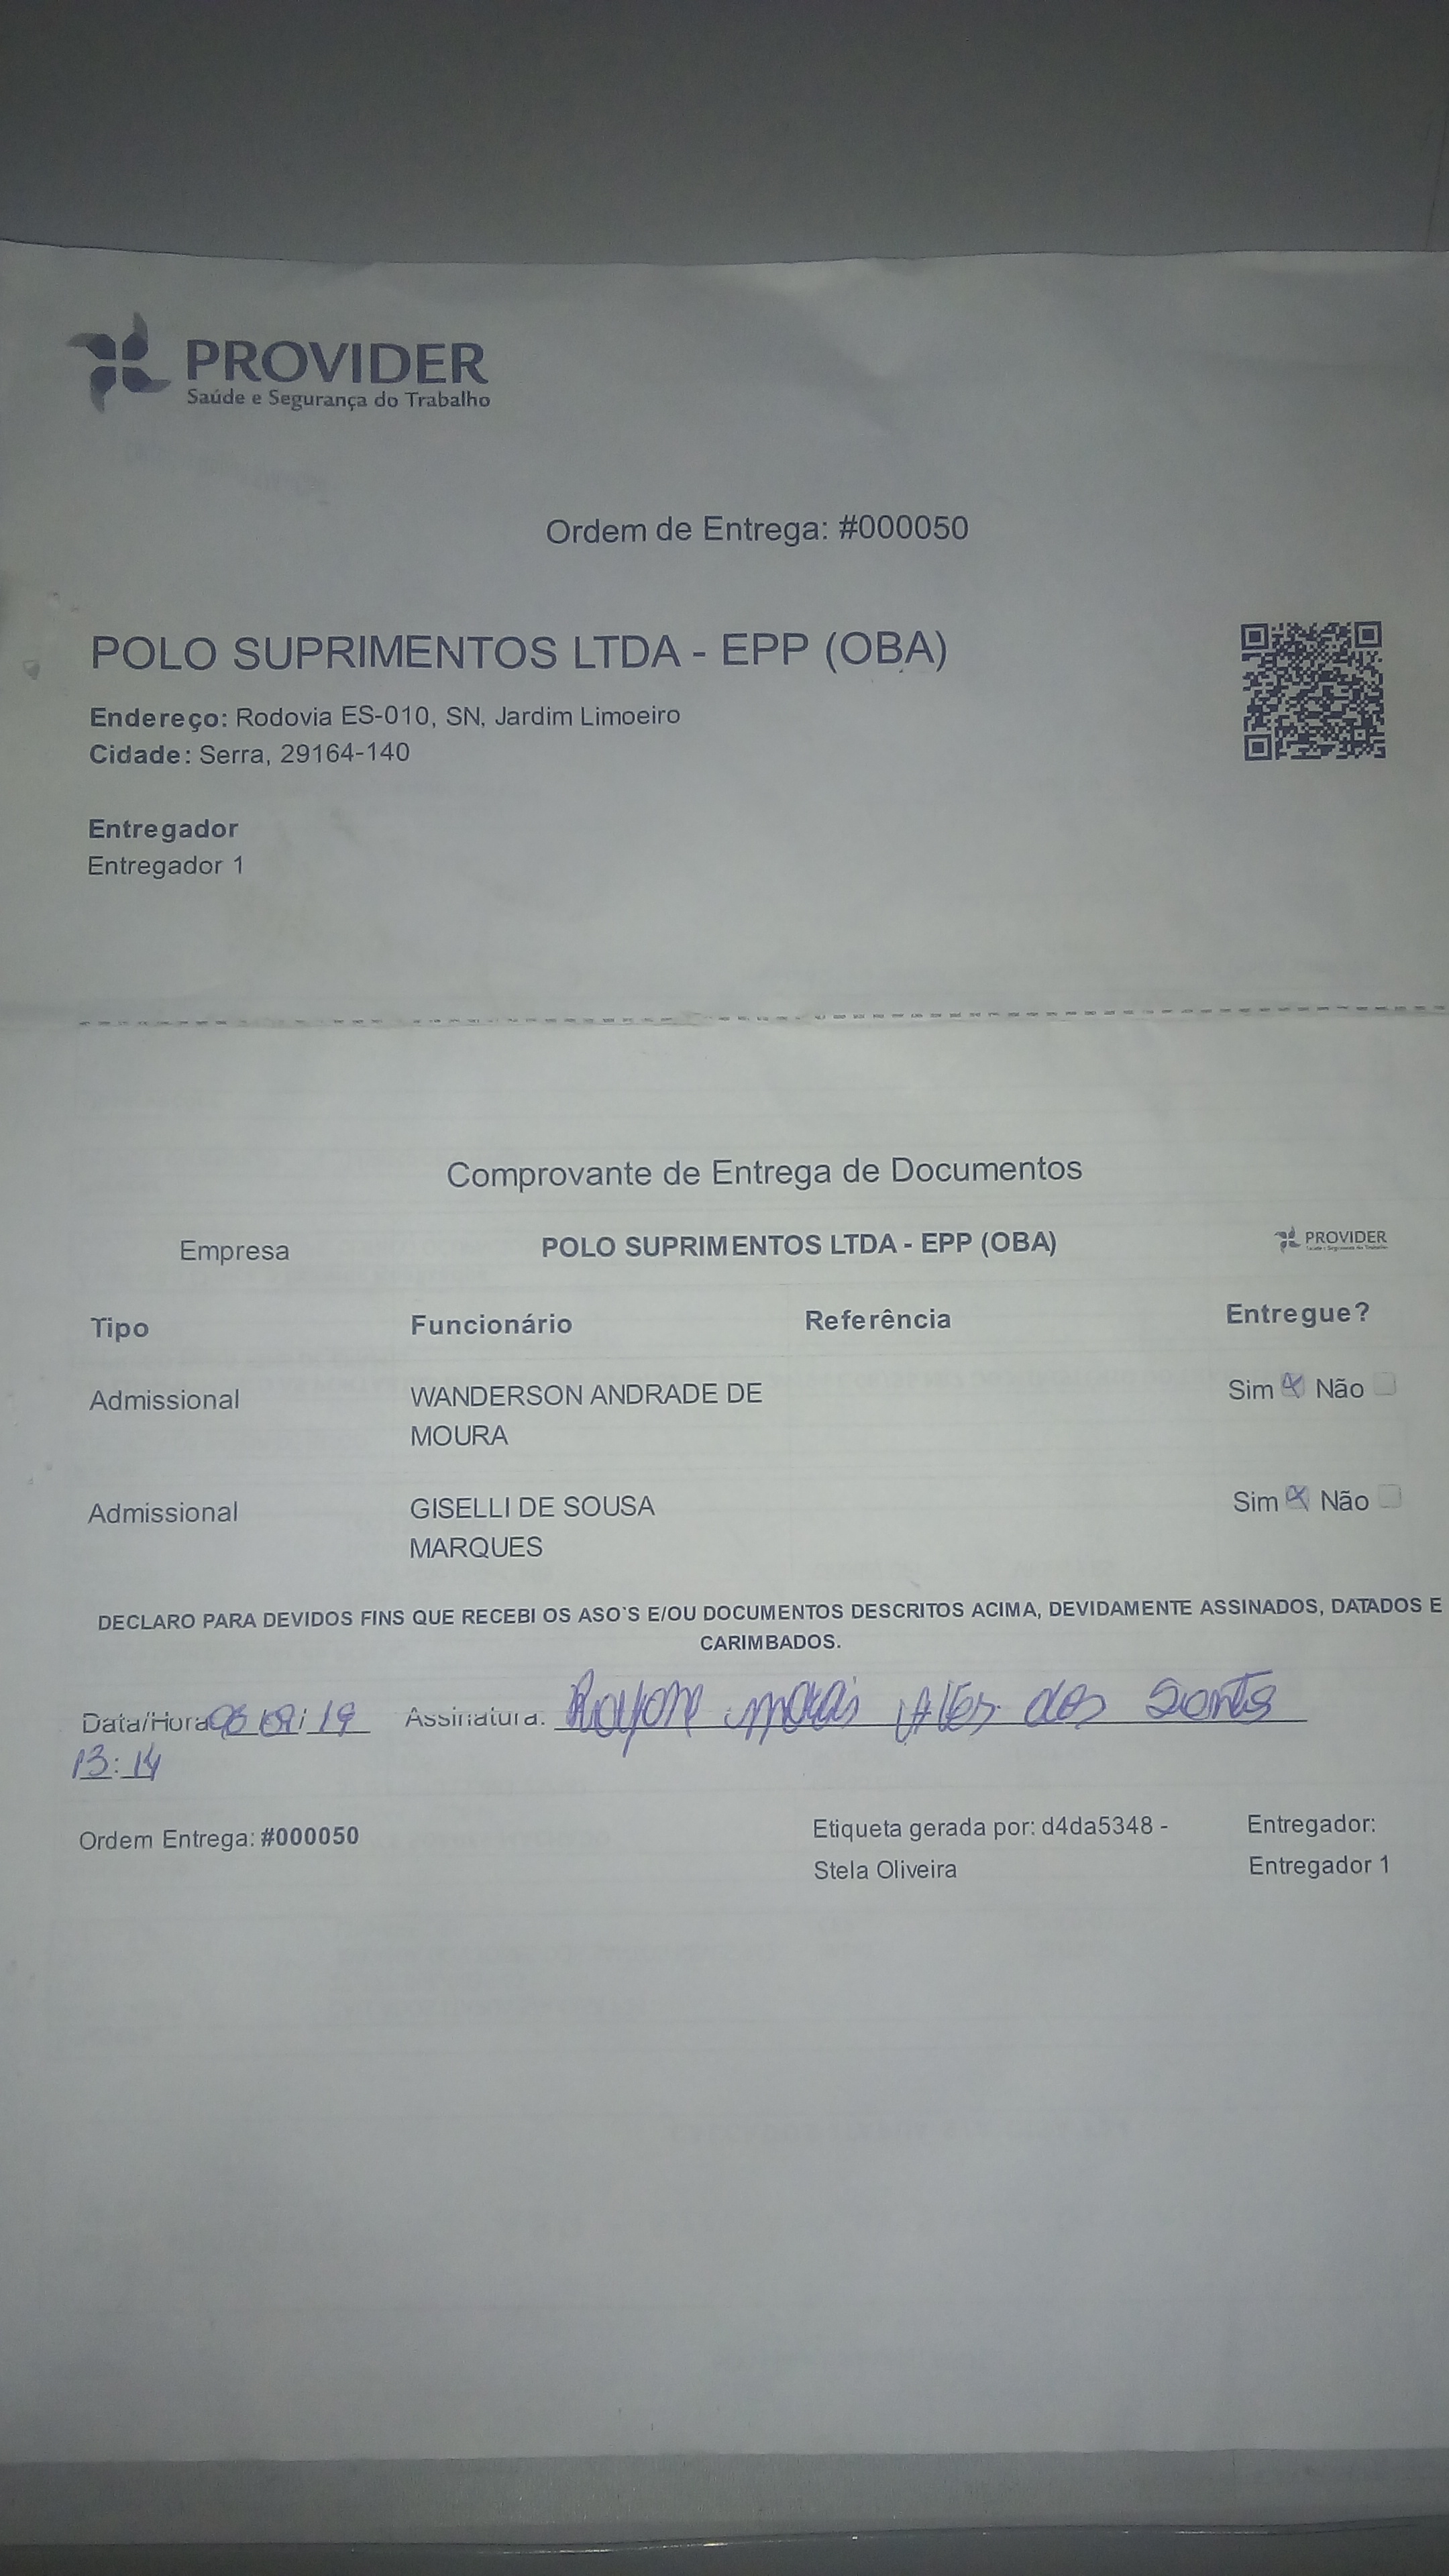 PROVIDER
Saúde e Segurança do Trabalho
Ordem de Entrega: #000050
POLO SUPRIMENTOS LTDA - EPP (OBA)
Endereço: Rodovia ES-010, SN, Jardim Limoeiro
Cidade: Serra, 29164-140
Entregador
Entregador 1
Comprovante de Entrega de Documentos
Empresa POLO SUPRIMENTOS LTDA - EPP (OBA) PROVIDER
Saúde e Segurança do Trabalho
Tipo Funcionário Referência Entregue?
Admissional WANDERSON ANDRADE DE Sim Não
MOURA
Admissional GISELLI DE SOUSA Sim Não
MARQUES
DECLARO PARA DEVIDOS FINS QUE RECEBI OS ASO`S E/OU DOCUMENTOS DESCRITOS ACIMA, DEVIDAMENTE ASSINADOS, DATADOS E
CARIMBADOS.
Data/Hora / 19 Assinatura: dos
13:14
Ordem Entrega: #000050 Etiqueta gerada por: d4da5348 - Entregador:
Stela Oliveira Entregador 1